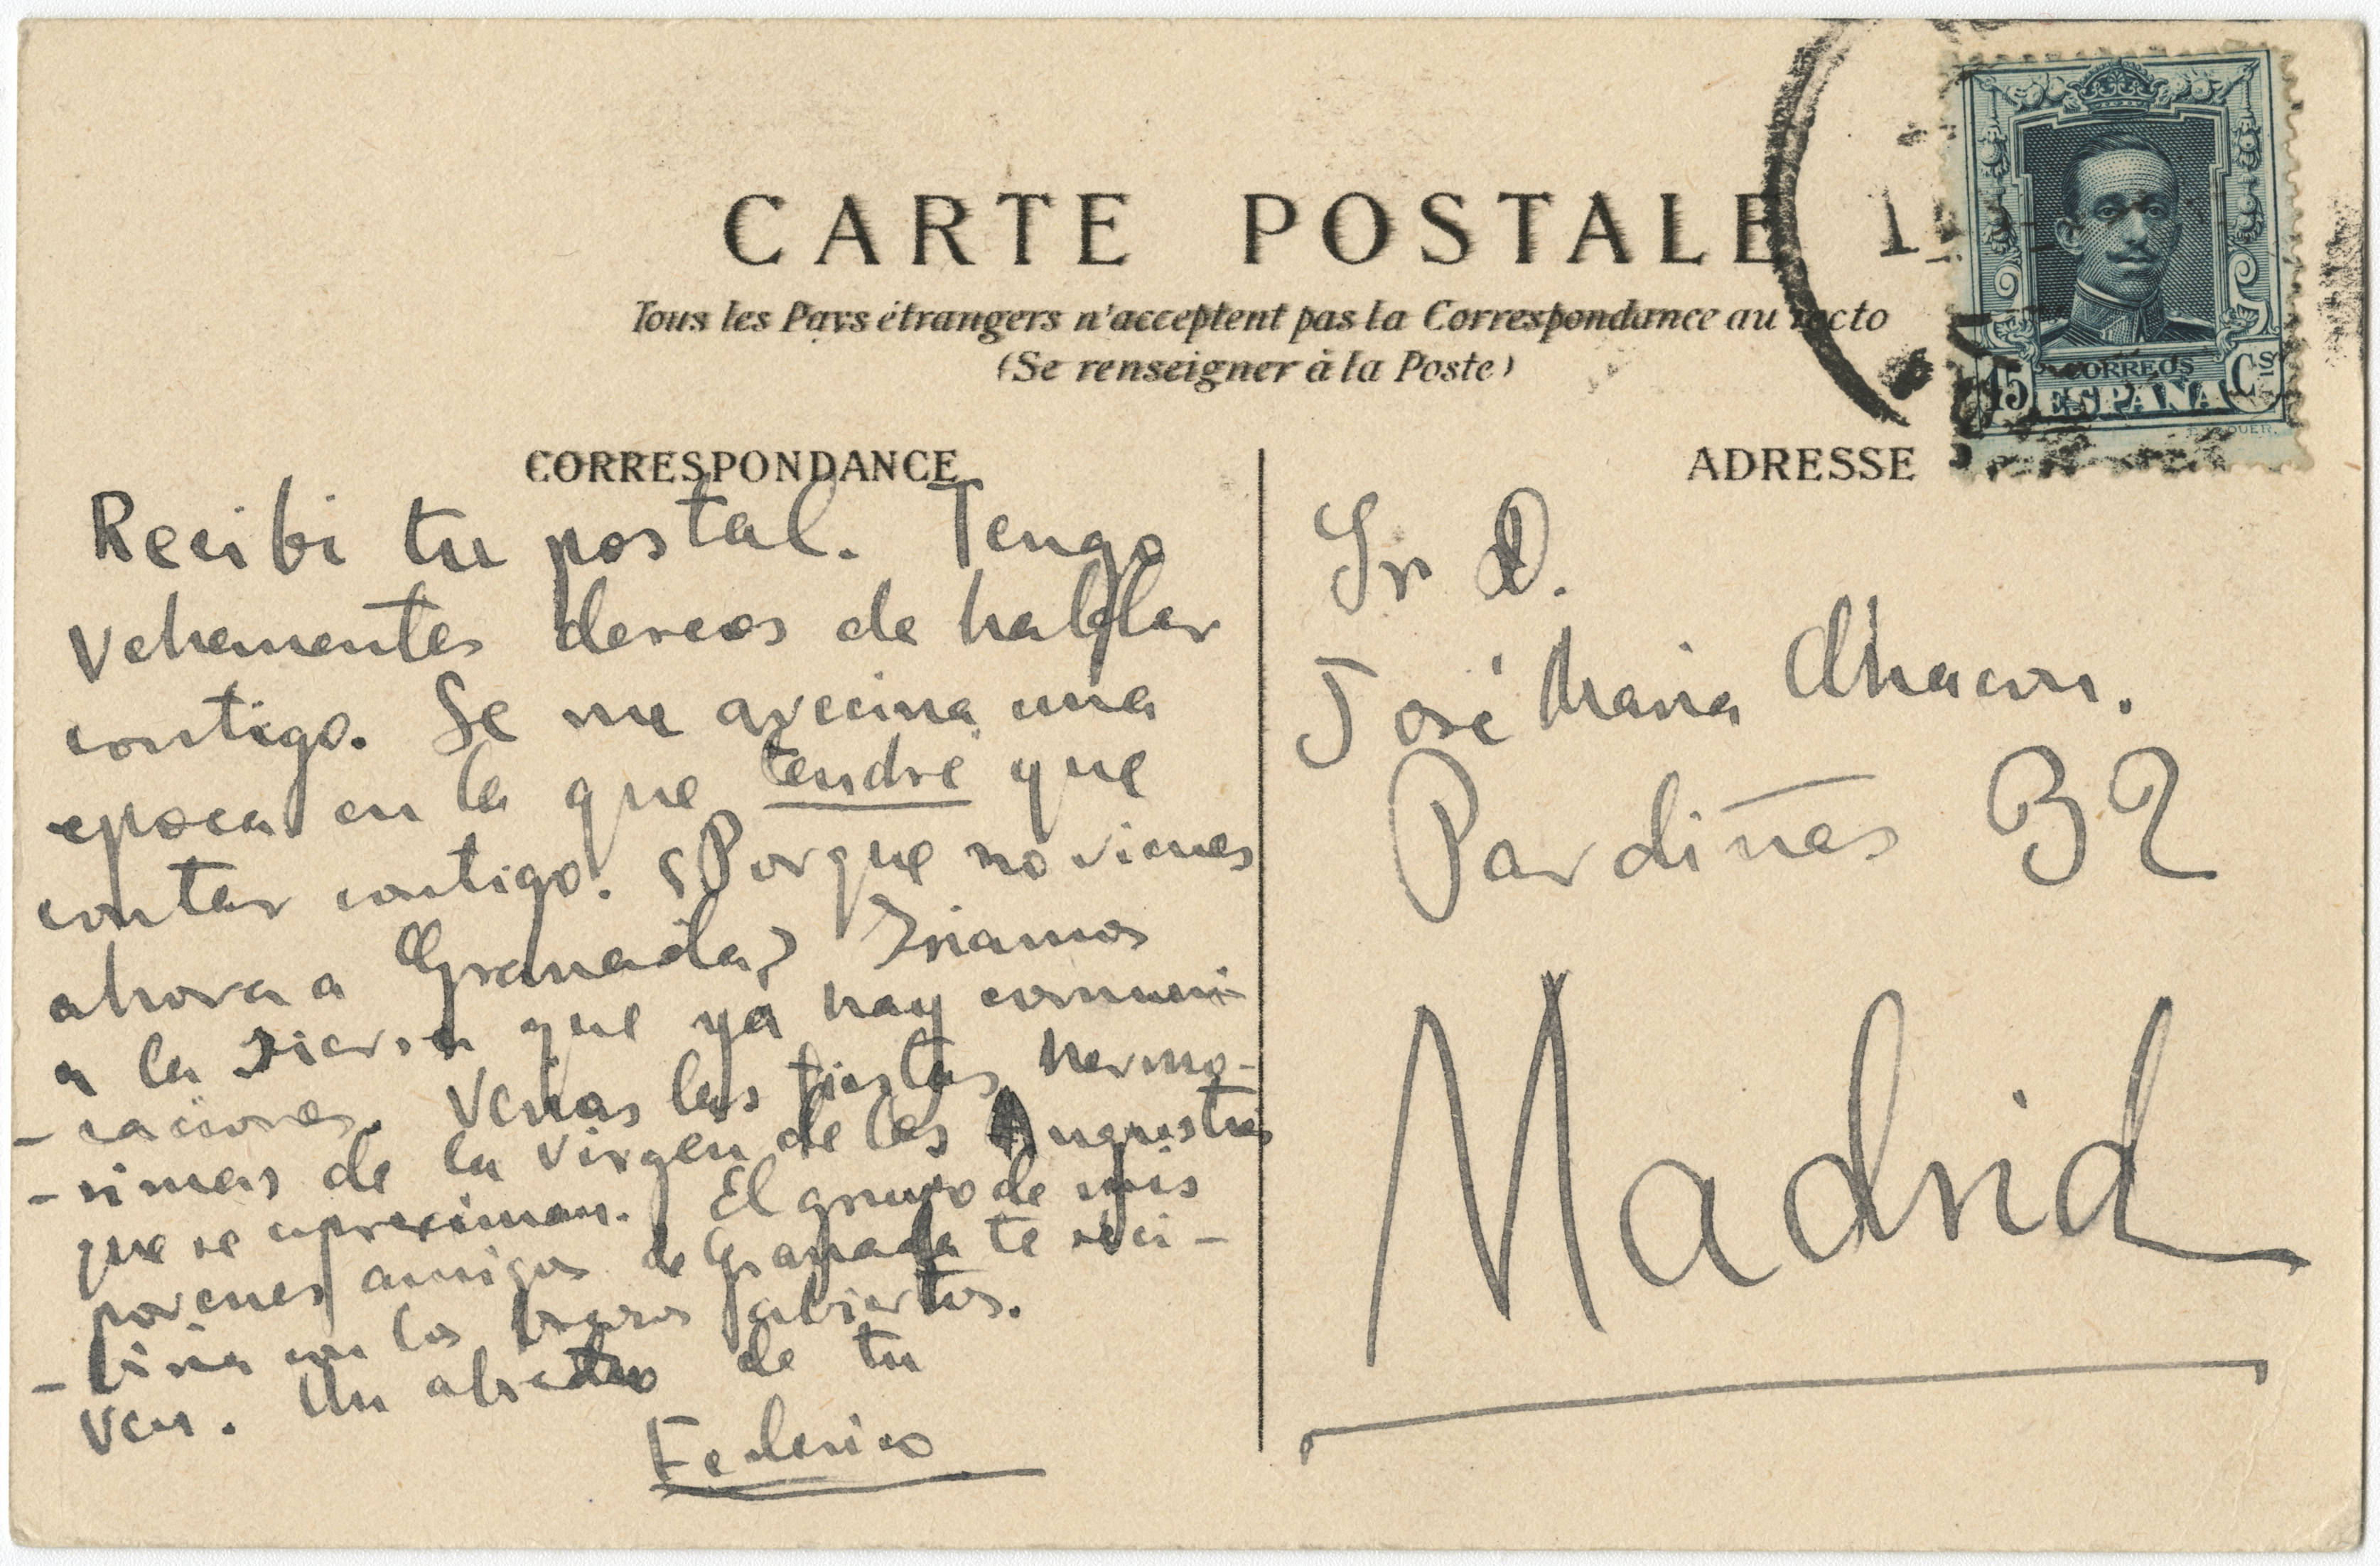 CARTE POSTALE
Tous les Pays étrangers n'acceptent pas la Correspondance au recto
(Se renseigner à la Poste)
CORREOS
15 ESPAÑA Cs
CORRESPONDANCE
Recibi tu postal. Tengo
vehementes deseos de hablar
contigo. Se me avecina una
epoca en la que tendré que
contar contigo. ¿Porque no vienes
ahora a Granada? Iriamos
a la sierra que ya hay comuni-
-caciones. Verias las fiestas hermo-
-simas de la Virgen de las Angustias
que se aproximan. El grupo de mis
jovenes amigos de Granada te reci-
-biria con los brazos abiertos.
Ven. Un abrazo de tu
Federico
ADRESSE
Sr D.
José Maria Chacon.
Pardiñas 32
Madrid